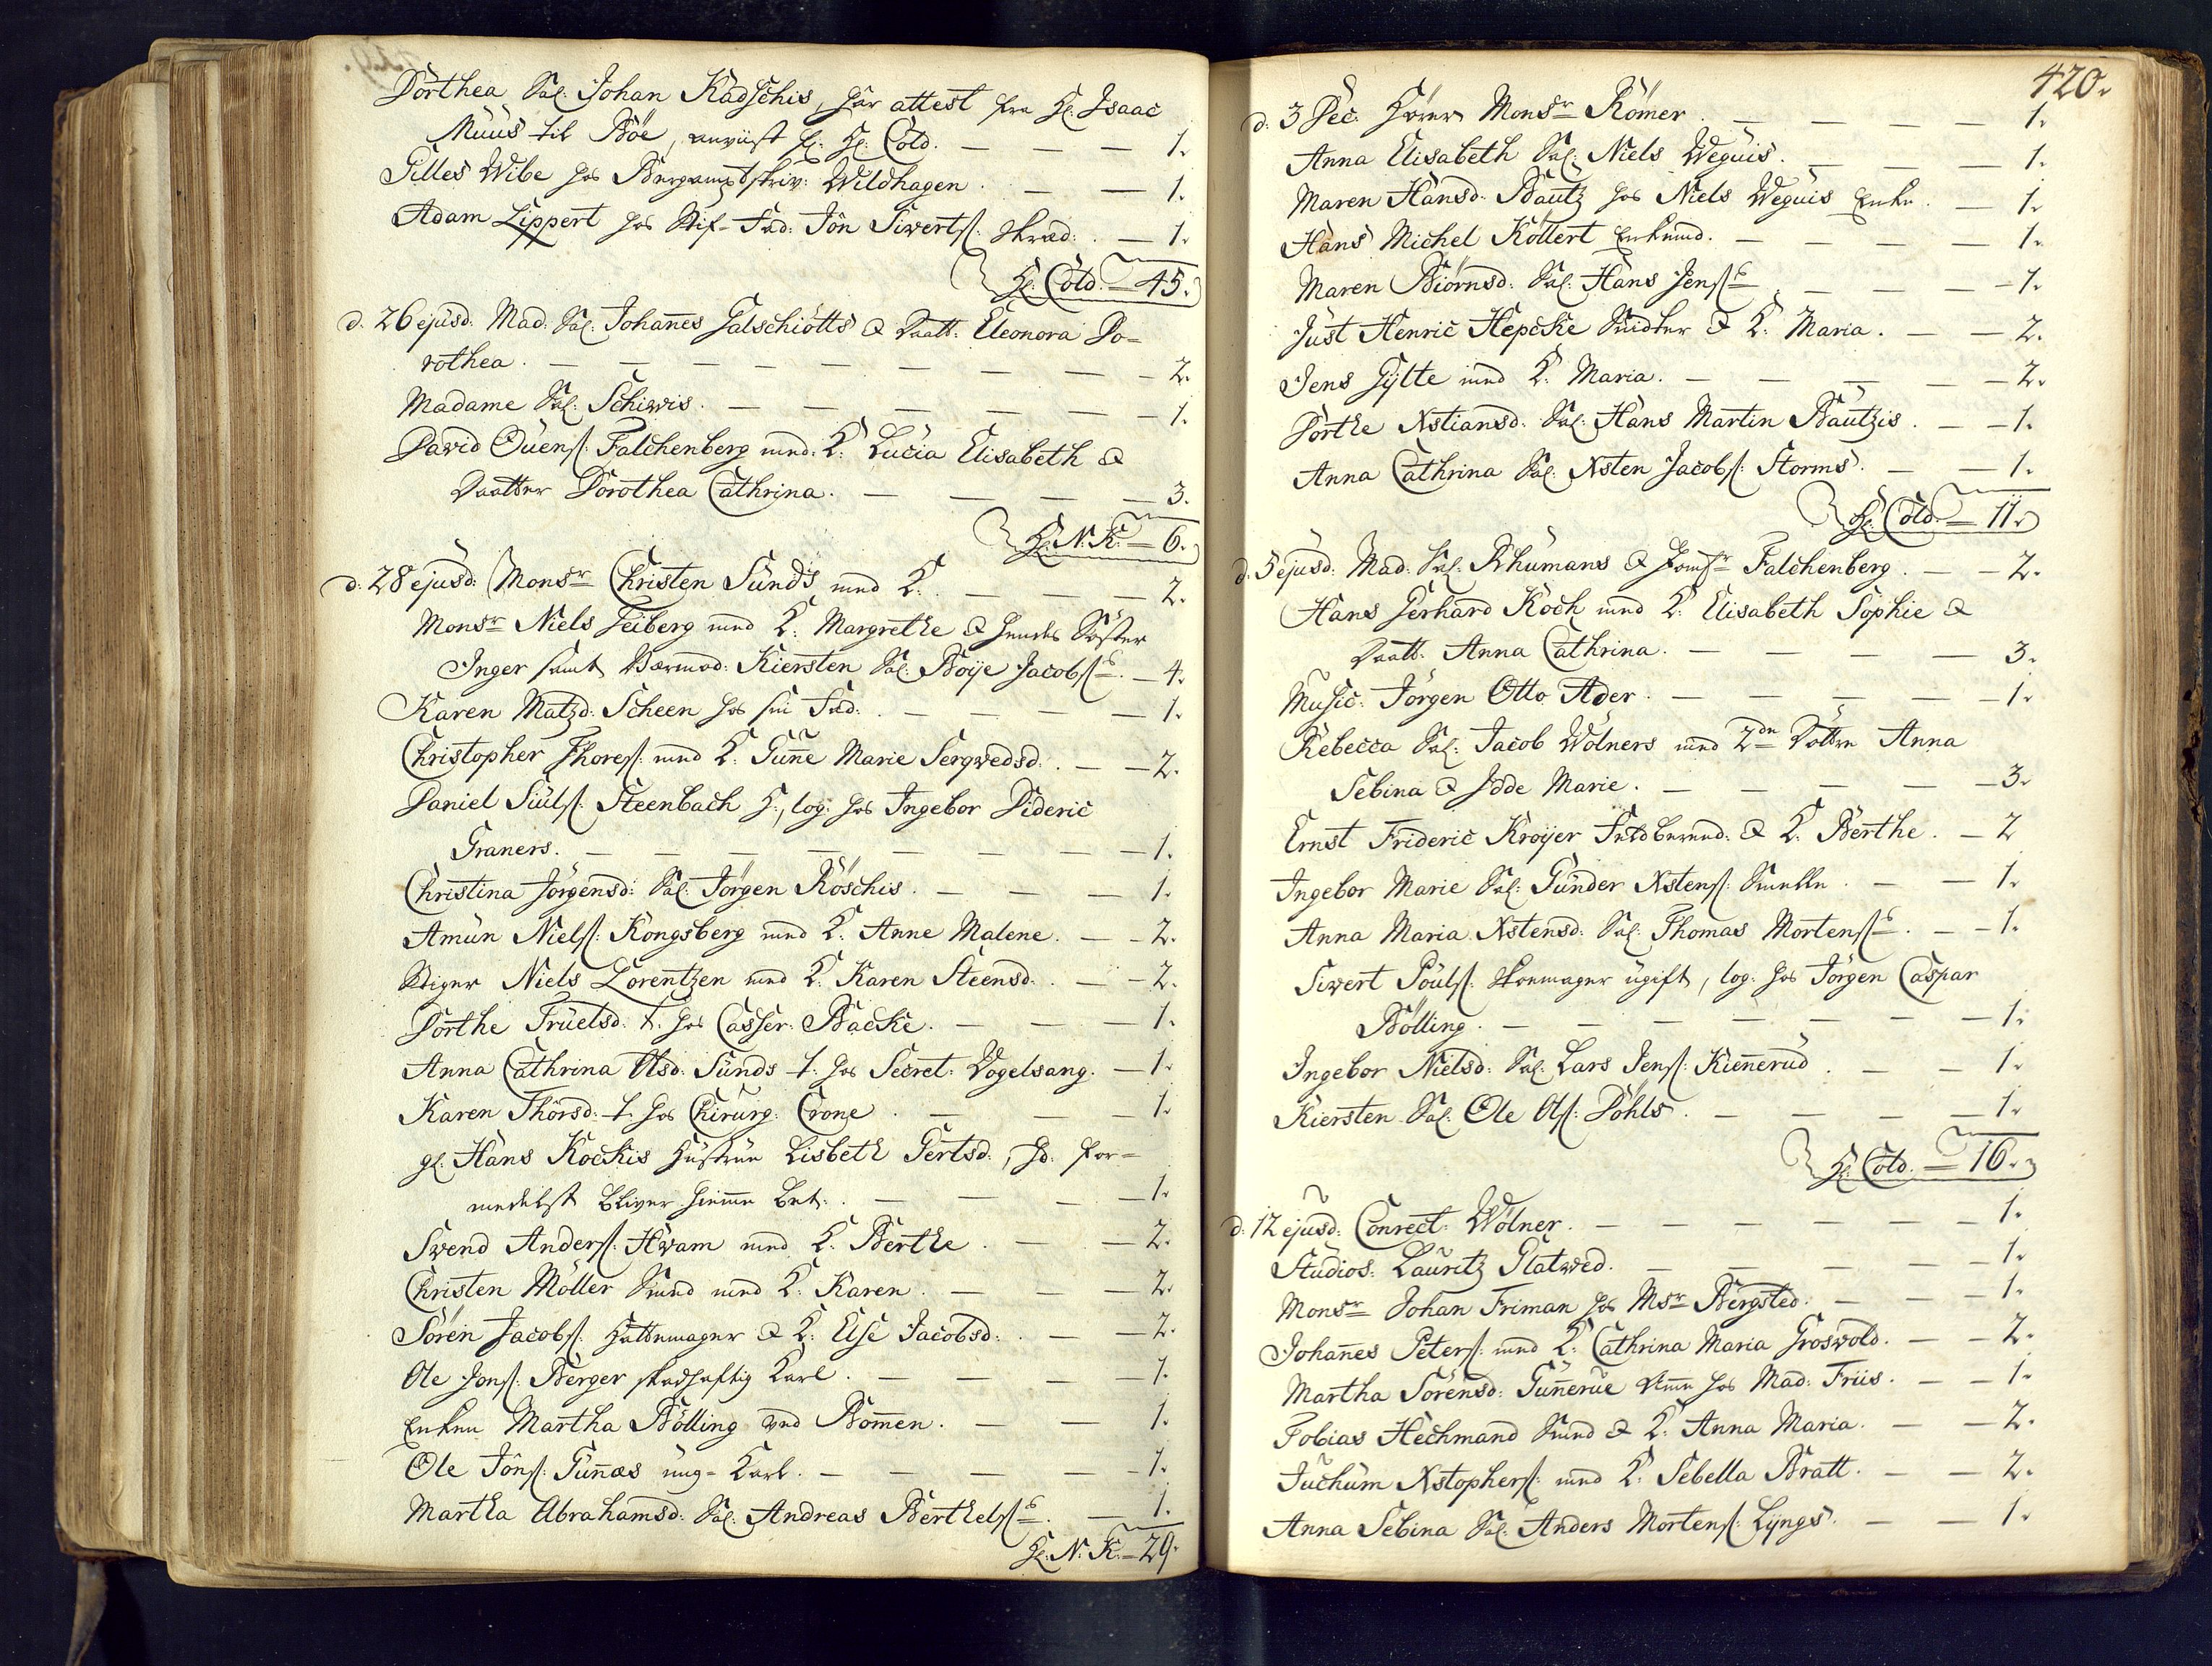 Dorthea Sal: Johan Kadschis, har attest fra Hr: Isaac
Muus til Böe, anviist Hr: Cold. — — — 1.
Gilles Wibe hos Bergamtskriv: Wildhagen. — — 1.
Adam Lippert hos Stif-Fad: Jon Siverts: Skræd: — 1.
Hr: Cold. — 45.
d. 26 ejusd: Mad: Sal: Johannes Galschiötts & Daatt: Eleonora Do=
rothea. — — — — — — — — 2.
Madame Sal: Schiwis. — — — — — — 1.
David Ouens: Falchenberg med K: Lucia Elisabeth &
Daatter Dorothea Cathrina. — — — — 3.
Hr: N: K: — 6.
d. 28 ejusd: Monsr Christen Sunds med K: — — — 2.
Monsr Niels Feiberg med K: Margrethe & hendes Söster
Inger samt Værmod: Kiersten Sal: Boije Jacobs: — 4.
Karen Matzd: Scheen hos sin Fad: — — — — 1.
Christopher Thores: med K: Gunne Marie Sergvedsd: — — 2.
Daniel Siuls: Steenbach H:, log: hos Ingebor Dideric
Graners. — — — — — — — — 1.
Christina Jörgensd: Sal: Jörgen Röschis. — — — 1.
Amun Niels: Kongsberg med K: Anne Malene. — — 2.
Stiger Niels Lorentzen med K: Karen Steensd: — — 2.
Dorthe Truelsd: t. hos Casser: Backe. — — — 1.
Anna Cathrina Olsd: Sunds t. hos Secret: Vogelsang. — 1.
Karen Thorsd: t. hos Chirurg: Crone. — — — 1.
gl: Hans Kockis Hustrue Lisbeth Gertsd:, sd. for=
medelst bliver hiemme bet: — — — — 1.
Svend Anders: Hvam med K: Berthe. — — 2.
Christen Möller Smed med K: Karen. — — — 2.
Sören Jacobs: Hattemager & K: Else Jacobsd: — — 2.
Ole Jons: Berger stadhaftig Karl. — — — — 1.
Enken Martha Bölling ved Bommen. — — — 1.
Ole Jons: Gunnæs ung-Karl. — — — — — 1.
Martha Abrahamsd: Sal: Andreas Berthels: — 1.
Hr: N: K: — 29.
420.
d. 3 Dec: Hörer Monsr Römer. — — — — 1.
Anna Elisabeth Sal: Niels Weguis. — — — 1.
Maren Hansd: Bautz hos Niels Weguis Enke. — 1.
Hans Michel Köllert Enkemd. — — — — 1.
Maren Biörnsd: Sal: Hans Jens: — — — — 1.
Just Henric Hepcke Snidker & K: Maria. — — 2.
Jens Gytte med K: Maria. — — — — — 2.
Dorthe Xstiansd: Sal: Hans Martin Bautzis. — — 1.
Anna Cathrina Sal: Xsten Jacobs: Storms. — — 1.
Hr: Cold. — 11.
d. 5 ejusd: Mad: Sal: Schumans & Jomfr Falchenberg. — — 2.
Hans Gerhard Koch med K: Elisabeth Sophie &
Daatt: Anna Cathrina. — — — — — 3.
Music: Jörgen Otto Ader. — — — — — 1.
Rebecca Sal: Jacob Wölners med 2de Döttre Anna
Sebina & Idde Marie. — — — — — 3.
Ernst Frideric Kroijer Feldbered: & K: Berthe. — 2
Ingebor Marie Sal: Gunder Xstens: Smelte. — — 1.
Anna Maria Xstensd: Sal: Thomas Mortens: — — 1.
Sivert Pouls: Skoemager ugift, log: hos Jörgen Caspar
Bölling. — — — — — — — 1.
Ingebor Nielsd: Sal: Lars Jens: Kiennerud. — — 1.
Kiersten Sal: Ole Ols: Döhls. — — — — 1.
Hr: Cold. — 16.
d. 12 ejusd: Conrect: Wölner. — — — — — 1.
Studios: Lauritz Glatved. — — — — — 1.
Monsr Johan Friman hos Msr Bergsted: — — — 1.
Johannes Peters: med K: Cathrina Maria Groswold. — — 2.
Martha Sörensd: Gunnerue Amme hos Mad: Friis. — — 1.
Tobias Hechmand Smed & K: Anna Maria. — — 2.
Juchum Xstophers: med K: Sebella Bratt. — — 2.
Anna Sebina Sal: Anders Mortens: Lyngs. — — 1.